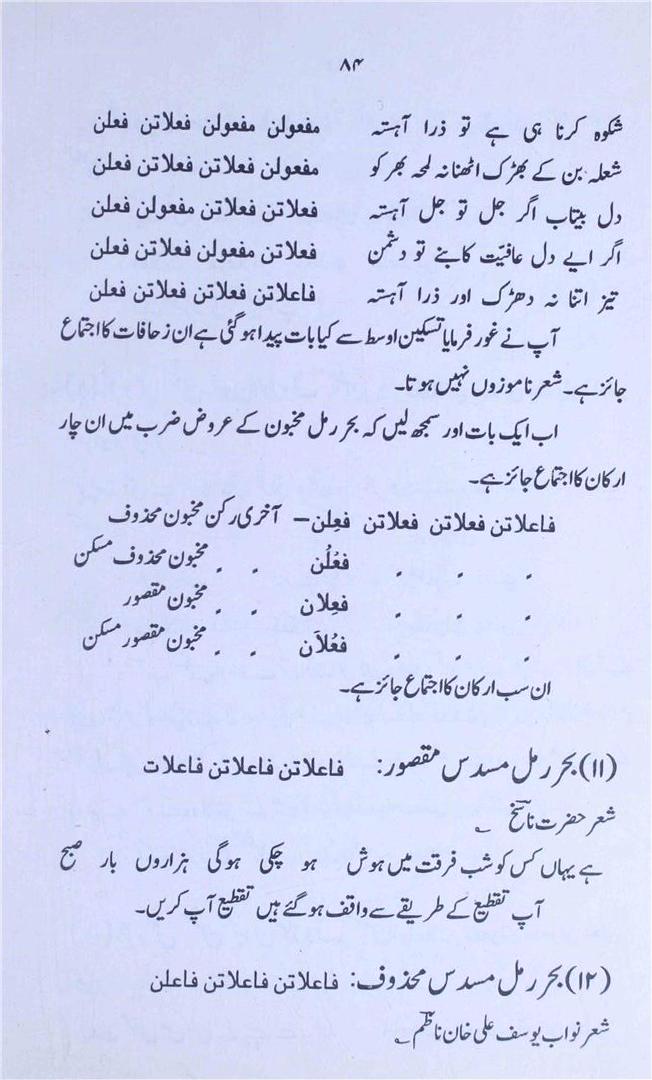 ۸۴
شکوہ کرنا ہی ہے تو ذرا آہستہ مفعولن مفعولن فعلاتن فعلن
شعلہ بن کے بھڑک اٹھنا نہ لمحہ بھر کو مفعولن فعلاتن فعلاتن فعلن
دل بیتاب اگر جل تو جل آہستہ فعلاتن فعلاتن مفعولن فعلن
اگر ایے دل عافیّت کا بنے تو دشمن فعلاتن مفعولن فعلاتن فعلن
تیز اتنا نہ دھڑک اور ذرا آہستہ فاعلاتن فعلاتن فعلاتن فعلن
آپ نے غور فرمایا تسکین اوسط سے کیا بات پیدا ہو گئی ہے ان زحافات کا اجتماع
جائز ہے۔ شعر ناموزوں نہیں ہوتا۔
اب ایک بات اور سمجھ لیں کہ بحر رمل مخبون کے عروض ضرب میں ان چار
ارکان کا اجتماع جائز ہے۔
فاعلاتن فعلاتن فعلاتن فعِلن – آخری رکن مخبون محذوف
〃 〃 〃 فعْلُن 〃 〃 مخبون محذوف مسکن
〃 〃 〃 فعِلان 〃 〃 مخبون مقصور
〃 〃 〃 فعْلاَن 〃 〃 مخبون مقصور مسکن
ان سب ارکان کا اجتماع جائز ہے۔
(۱۱) بحر رمل مسدس مقصور: فاعلاتن فاعلاتن فاعلات
شعر حضرت ناسخؔ
ہے یہاں کس کو شب فرقت میں ہوش ہو چکی ہوگی ہزاروں بار صبح
آپ تقطیع کے طریقے سے واقف ہو گئے ہیں تقطیع آپ کریں۔
(۱۲) بحر رمل مسدس محذوف: فاعلاتن فاعلاتن فاعلن
شعر نواب یوسف علی خان ناظمؔ